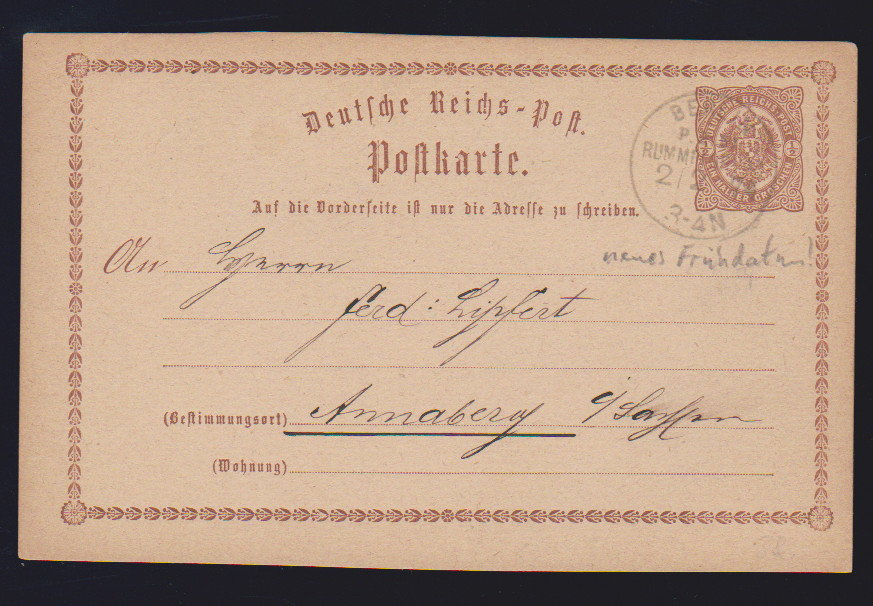 Deutsche Reichs-Post.
Postkarte.
Auf die Vorderseite ist nur die Adresse zu schreiben.
DEUTSCHE REICHS-POST
½ ½
EIN HALBER GROSCHEN
BE
P
RUMM
2/
3-4N
neues Frühdatum!
An Herrn
Ferd: Lipfert
(Bestimmungsort) Annaberg i/Sachsen
(Wohnung)